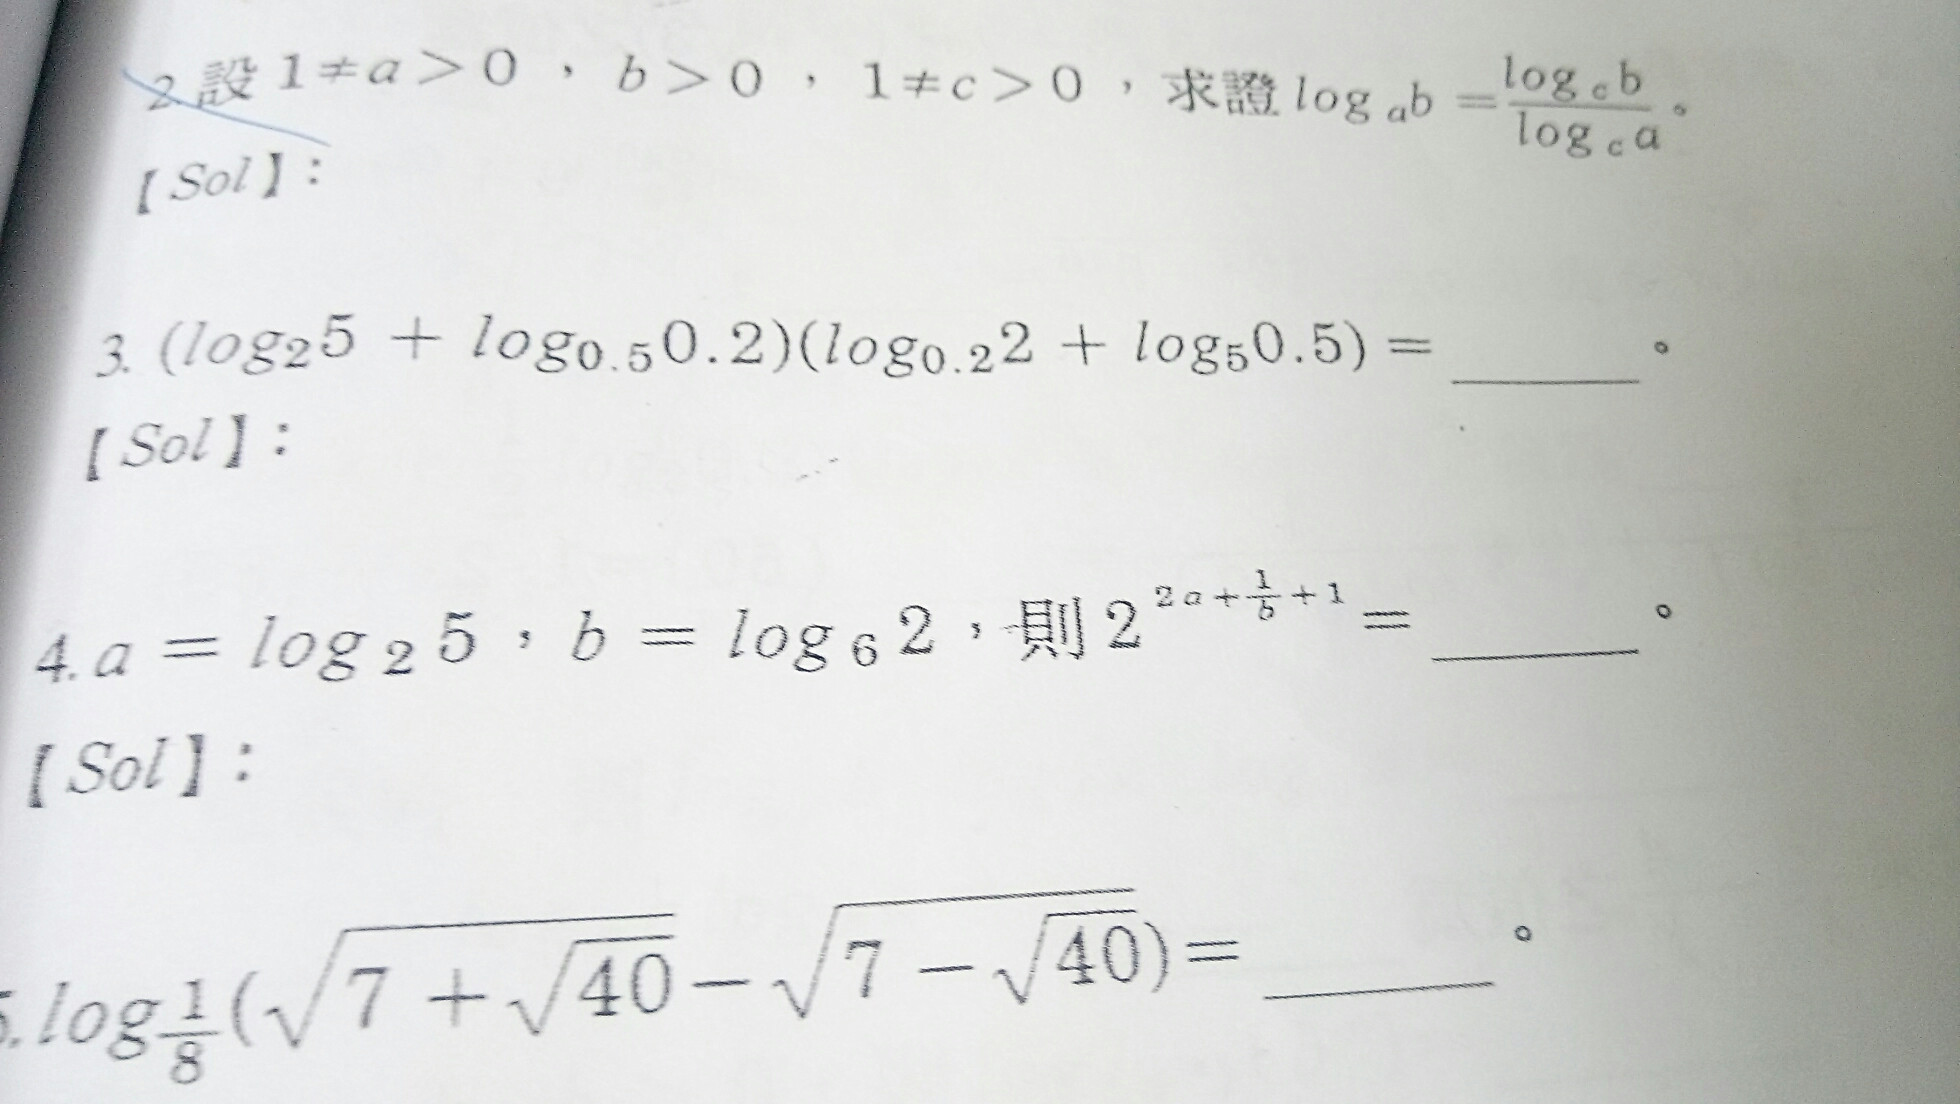 2.設 1≠a>0,b>0,1≠c>0,求證 logₐb = log_c b / log_c a。
【Sol】:
3. (log₂5 + log₀.₅0.2)(log₀.₂2 + log₅0.5) = ______。
【Sol】:
4. a = log₂5,b = log₆2,則 2^(2a + 1/b + 1) = ______。
【Sol】:
5. log_(1/8)(√(7 + √40) − √(7 − √40)) = ______。